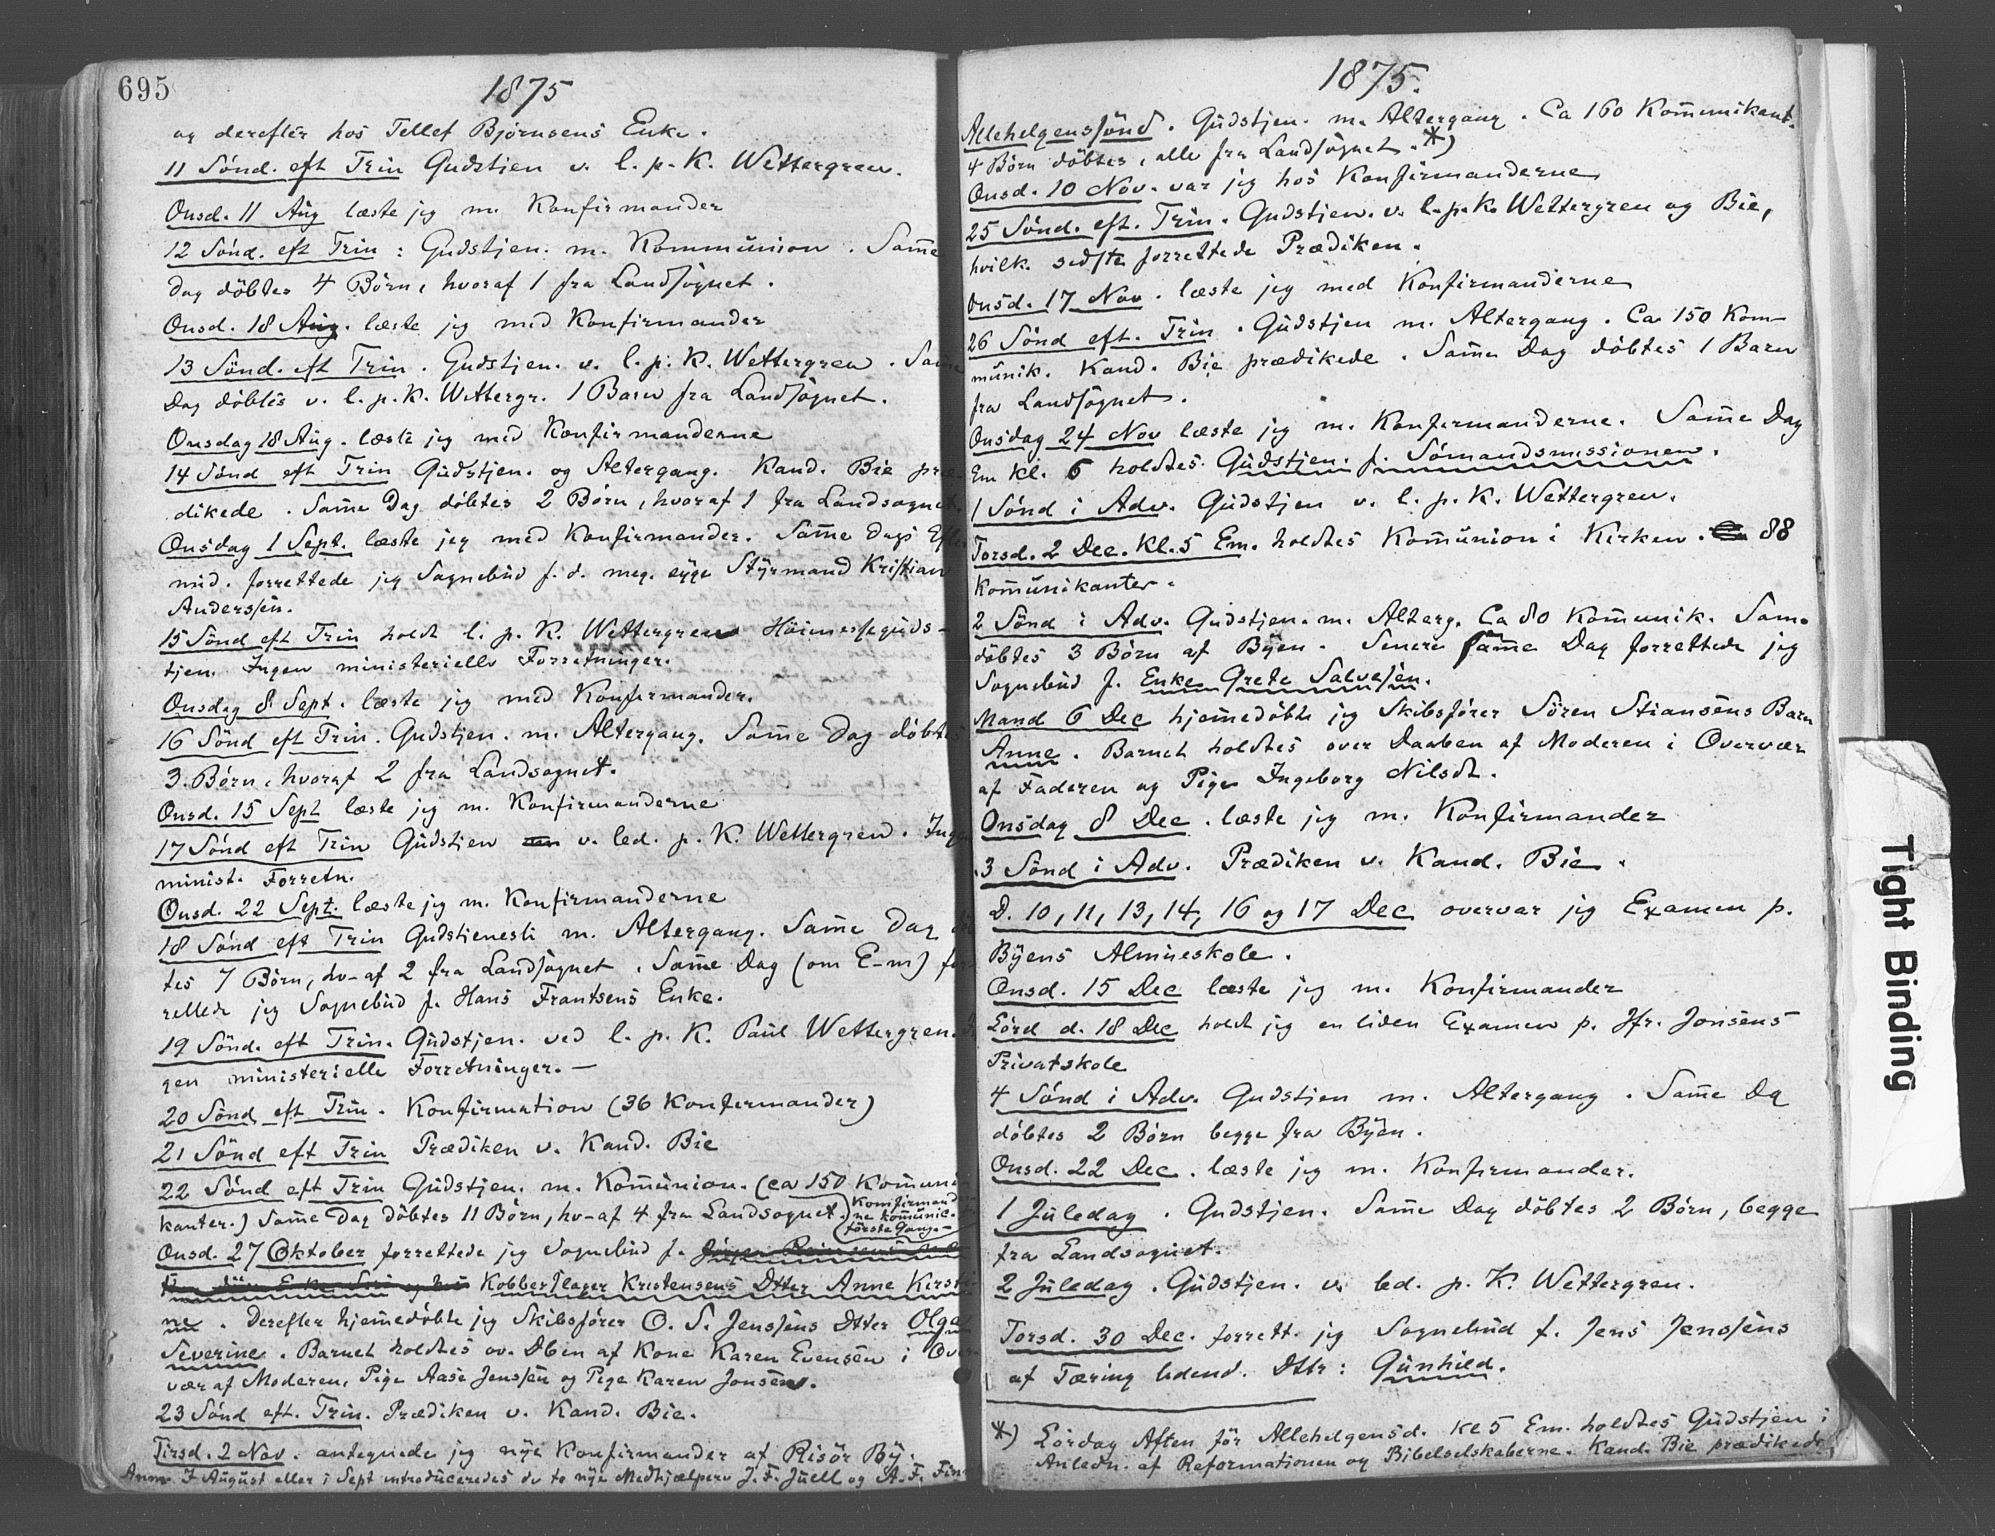 695
1875
og derefter hos Tellef Bjørnsens Enke.
11 Sönd. eft Trin Gudstjen v. l. p. K. Wettergren.
Onsd. 11 Aug læste jeg m. Konfirmander
12 Sönd. eft Trin : Gudstjen. m. Kommünion. Sam̄e
Dag döbtes 4 Börn, hvoraf 1 fra Landsognet.
Onsd. 18 Aug. læste jeg med Konfirmander
13 Sönd. eft Trin. Gudstjen. v. l. p. K. Wettergren.
Dag döbtes v. l. p. K. Wettergr. 1 Barn fra Landsognet.
Onsdag 18 Aug. læste jeg med Konfirmanderne
14 Sönd eft Trin Gudstjen. og Altergang. Kand. Bie præ-
dikede. Sam̄e Dag döbtes 2 Börn, hvoraf 1 fra Landsognet.
Onsdag 1 Sept. læste jeg med Konfirmander. Sam̄e Dags
mid. forrettede jeg Sognebüd f. d. meg. syge Styrmand Kristian
Anderssen.
15 Sönd eft Trin holdt l. p. K. Wettergren Höimessegüds-
tjen. Ingen ministerielle Forretninger.
Onsdag 8 Sept. læste jeg med Konfirmander.
16 Sönd eft Trin. Gudstjen. m. Altergang. Sam̄e Dag döbtes
3 Börn, hvoraf 2 fra Landsognet.
Onsd. 15 Sept læste jeg m. Konfirmanderne
17 Sönd eft Trin Gudstjen v. led. p. K. Wettergren.
minist. Forretn.
Onsd. 22 Sept. læste jeg m. Konfirmanderne
18 Sönd eft Trin Gudstjeneste m. Altergang. Sam̄e Dag
tes 7 Börn, hv-af 2 fra Landsognet. Sam̄e Dag (om E-m)
rettede jeg Sognebüd f. Hans Frantsens Enke.
19 Sönd. eft Trin. Gudstjen. ved l. p. K. Paul Wettergren.
gen ministerielle Forretninger. —
20 Sönd eft Trin. Konfirmation (36 Konfirmander)
21 Sönd eft Trin Prædiken v. Kand. Bie
22 Sönd eft Trin Gudstjen. m. Kom̄ünion. (ca 150 Kom̄uni
kanter.) Sam̄e Dag döbtes 11 Börn, hv-af 4 fra Landsognet. (Konfirmander
ne kom̄unic.
förste Gang. —
Onsd. 27 Oktober forrettede jeg Sognebüd f.
Kobberslager Kristensens Dtter Anne Kirsti
ne. Derefter hjem̄edöbte jeg Skibsförer O. S. Jenssens Dtter Olga
Siverine. Barnet holdtes ov. Dben af Kone Karen Evensen i Over
vær af Moderen, Pige Aase Jenssen og Pige Karen Jonsen.
23 Sönd eft. Trin. Prædiken v. Kand. Bie.
Tirsd. 2 Nov. antegnede jeg nye Konfirmander af Risör By.
Anm. I August eller i Sept introduceredes de to nye Medhjælpere J. F. Juell og A. F. Finn
1875.
Allehelgenssönd. Gudstjen. m. Altergang. Ca 160 Kom̄unikant.
4 Börn döbtes, alle fra Landsognet. *)
Onsd. 10 Nov. var jeg hos Konfirmanderne
25 Sönd. eft. Trin. Gudstjen. v. l. p. K. Wettergren og Bie,
hvilk. sidste forrettede Prædiken.
Onsd. 17 Nov. læste jeg med Konfirmanderne
26 Sönd eft. Trin. Gudstjen m. Altergang. Ca 150 Kom-
münik. Kand. Bie prædikede. Sam̄e Dag döbtes 1 Barn
fra Landsognet.
Onsdag 24 Nov læste jeg m. Konfirmanderne. Sam̄e Dag
Em Kl. 6 holdtes Gudstjen. f. Sömandsmissionen.
1 Sönd i Adv. Gudstjen v. l. p. K. Wettergren.
Torsd. 2 Dec. Kl. 5 Em. holdtes Kom̄ünion i Kirken. 88
Kom̄unikanter.
2 Sönd i Adv. Gudstjen. m. Alterg. Ca 80 Kom̄unik. Sam.
döbtes 3 Börn af Byen. Senere sam̄e Dag forrettede jeg
Sognebüd f. Enke Grete Salvesen.
Mand 6 Dec hjem̄edöbte jeg Skibsförer Sören Stiansens Barn
Anne. Barnet holdtes over Daaben af Moderen i Overvær
af Faderen og Pige Ingeborg Nilsdt.
Onsdag 8 Dec. læste jeg m. Konfirmander
3 Sönd i Adv. Prædiken v. Kand. Bie.
D. 10, 11, 13, 14, 16 og 17 Dec overvar jeg Examen p.
Byens Almueskole.
Onsd. 15 Dec læste jeg m. Konfirmander
Lörd d. 18 Dec holdt jeg en liden Examen p. Jfr. Jonsens
Privatskole
4 Sönd i Adv. Gudstjen m. Altergang. Sam̄e Dg
döbtes 2 Börn begge fra Byen.
Onsd. 22 Dec. læste jeg m. Konfirmander.
1 Juledag. Gudstjen. Sam̄e Dag döbtes 2 Börn, begge
fra Landsognet.
2 Juledag. Gudstjen. v. led. p. K. Wettergren.
Torsd. 30 Dec. forrett. jeg Sognebüd f. Jens Jenssens
af Tæring lidend. Dttr: Günhild.
*) Lördag Aften för Allehelgensd. Kl 5 Em. holdtes Gudstjen i
Anledn. af Reformationen og Bibelselskaberne. Kand. Bie prædikede
Tight Binding